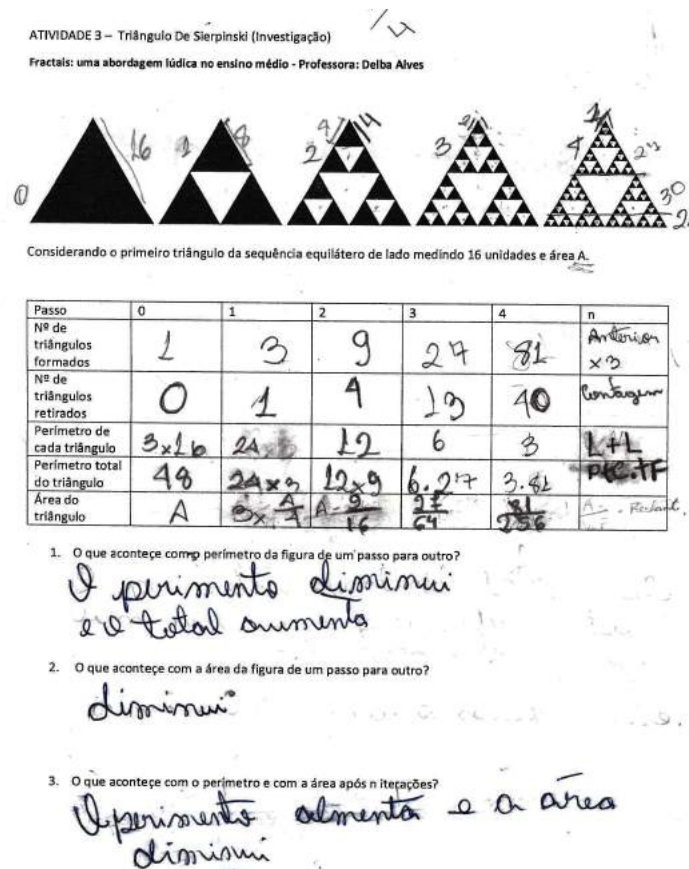 ATIVIDADE 3 – Triângulo De Sierpinski (Investigação)
Fractais: uma abordagem lúdica no ensino médio - Professora: Delba Alves
0 16 1 8 2 4 14 3 2 4 1 30
Considerando o primeiro triângulo da sequência equilátero de lado medindo 16 unidades e área A.
Passo 0 1 2 3 4 n
Nº de triângulos formados 1 3 9 27 81 Anterior x3
Nº de triângulos retirados 0 1 4 13 40 Contagem
Perímetro de cada triângulo 3x16 24 12 6 3 L+L
Perímetro total do triângulo 48 24x3 12x9 6.27 3.81
Área do triângulo A 3x A/4 A. 9/16 27/64 81/256
1. O que acontece com o perímetro da figura de um passo para outro?
O perimento diminui
e o total aumenta
2. O que acontece com a área da figura de um passo para outro?
diminui
3. O que acontece com o perímetro e com a área após n iterações?
O perimento almenta e a área
diminui